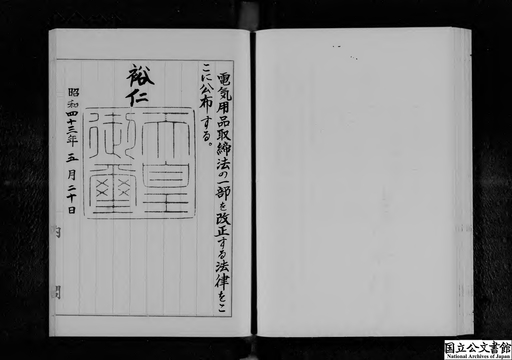 電気用品取締法の一部を改正する法律をこ
こに公布する。
裕仁
天皇
御璽
昭和四十三年五月二十日
内
閣
国立公文書館
National Archives of Japan